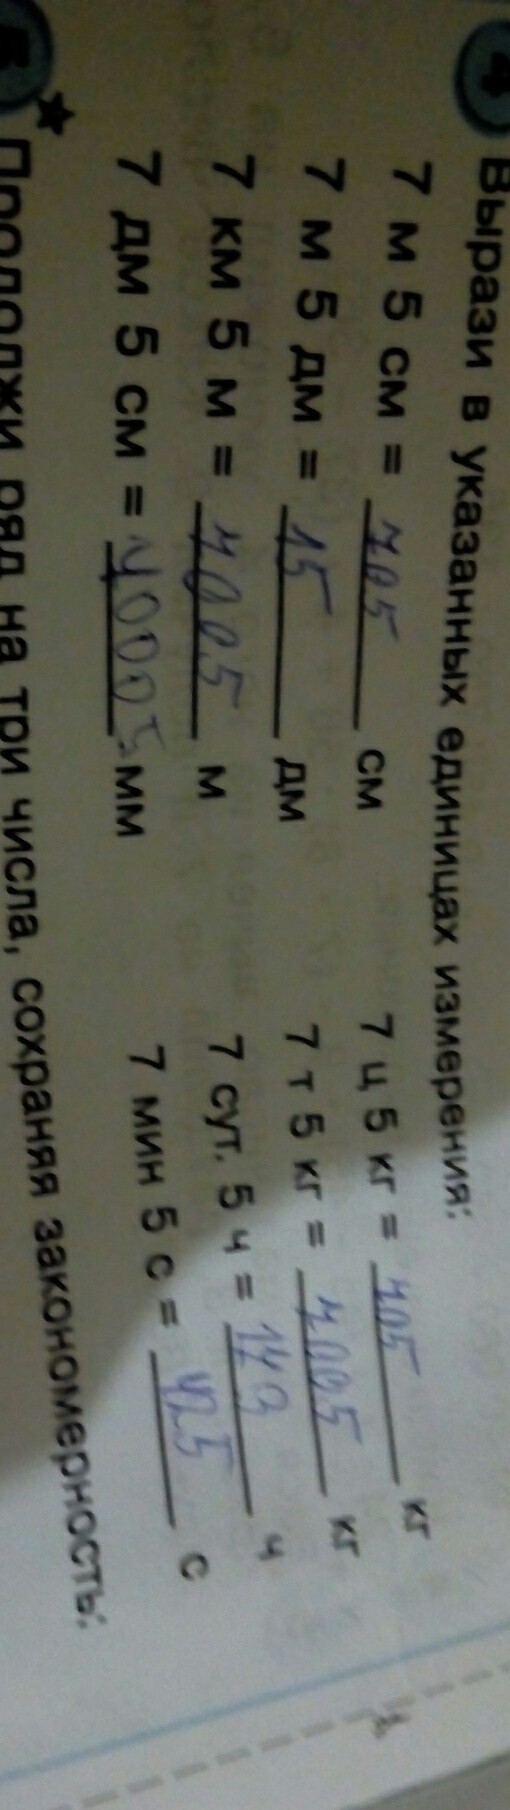 4 Вырази в указанных единицах измерения:
7 м 5 см = 705 см
7 м 5 дм = 15 дм
7 км 5 м = 7005 м
7 дм 5 см = мм
7 ц 5 кг = 705 кг
7 т 5 кг = 7005 кг
7 сут. 5 ч = 173 ч
7 мин 5 с = 425 с
5 Продолжи ряд на три числа, сохраняя закономерность: